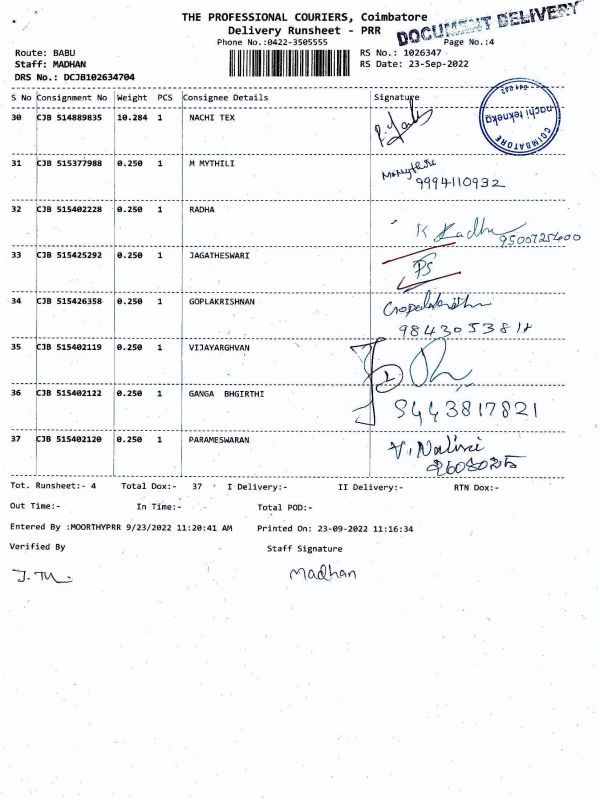 THE PROFESSIONAL COURIERS, Coimbatore
Delivery Runsheet - PRR
DOCUMENT DELIVERY
Phone No.:0422-3505555
Page No.:4
Route: BABU
RS No.: 1026347
Staff: MADHAN
RS Date: 23-Sep-2022
DRS No.: DCJB102634704
S No Consignment No Weight PCS Consignee Details Signature
30 CJB 514889835 10.284 1 NACHI TEX
COIMBATORE
31 CJB 515377988 0.250 1 M MYTHILI
9994110932
32 CJB 515402228 0.250 1 RADHA
K Radhu 9500725400
33 CJB 515425292 0.250 1 JAGATHESWARI
PS
34 CJB 515426358 0.250 1 GOPLAKRISHNAN
9843053818
35 CJB 515402119 0.250 1 VIJAYARGHVAN
36 CJB 515402122 0.250 1 GANGA BHGIRTHI
9443817821
37 CJB 515402120 0.250 1 PARAMESWARAN
V. Nalini
Tot. Runsheet:- 4 Total Dox:- 37 I Delivery:- II Delivery:- RTN Dox:-
Out Time:- In Time:- Total POD:-
Entered By :MOORTHYPRR 9/23/2022 11:20:41 AM Printed On: 23-09-2022 11:16:34
Verified By Staff Signature
Madhan